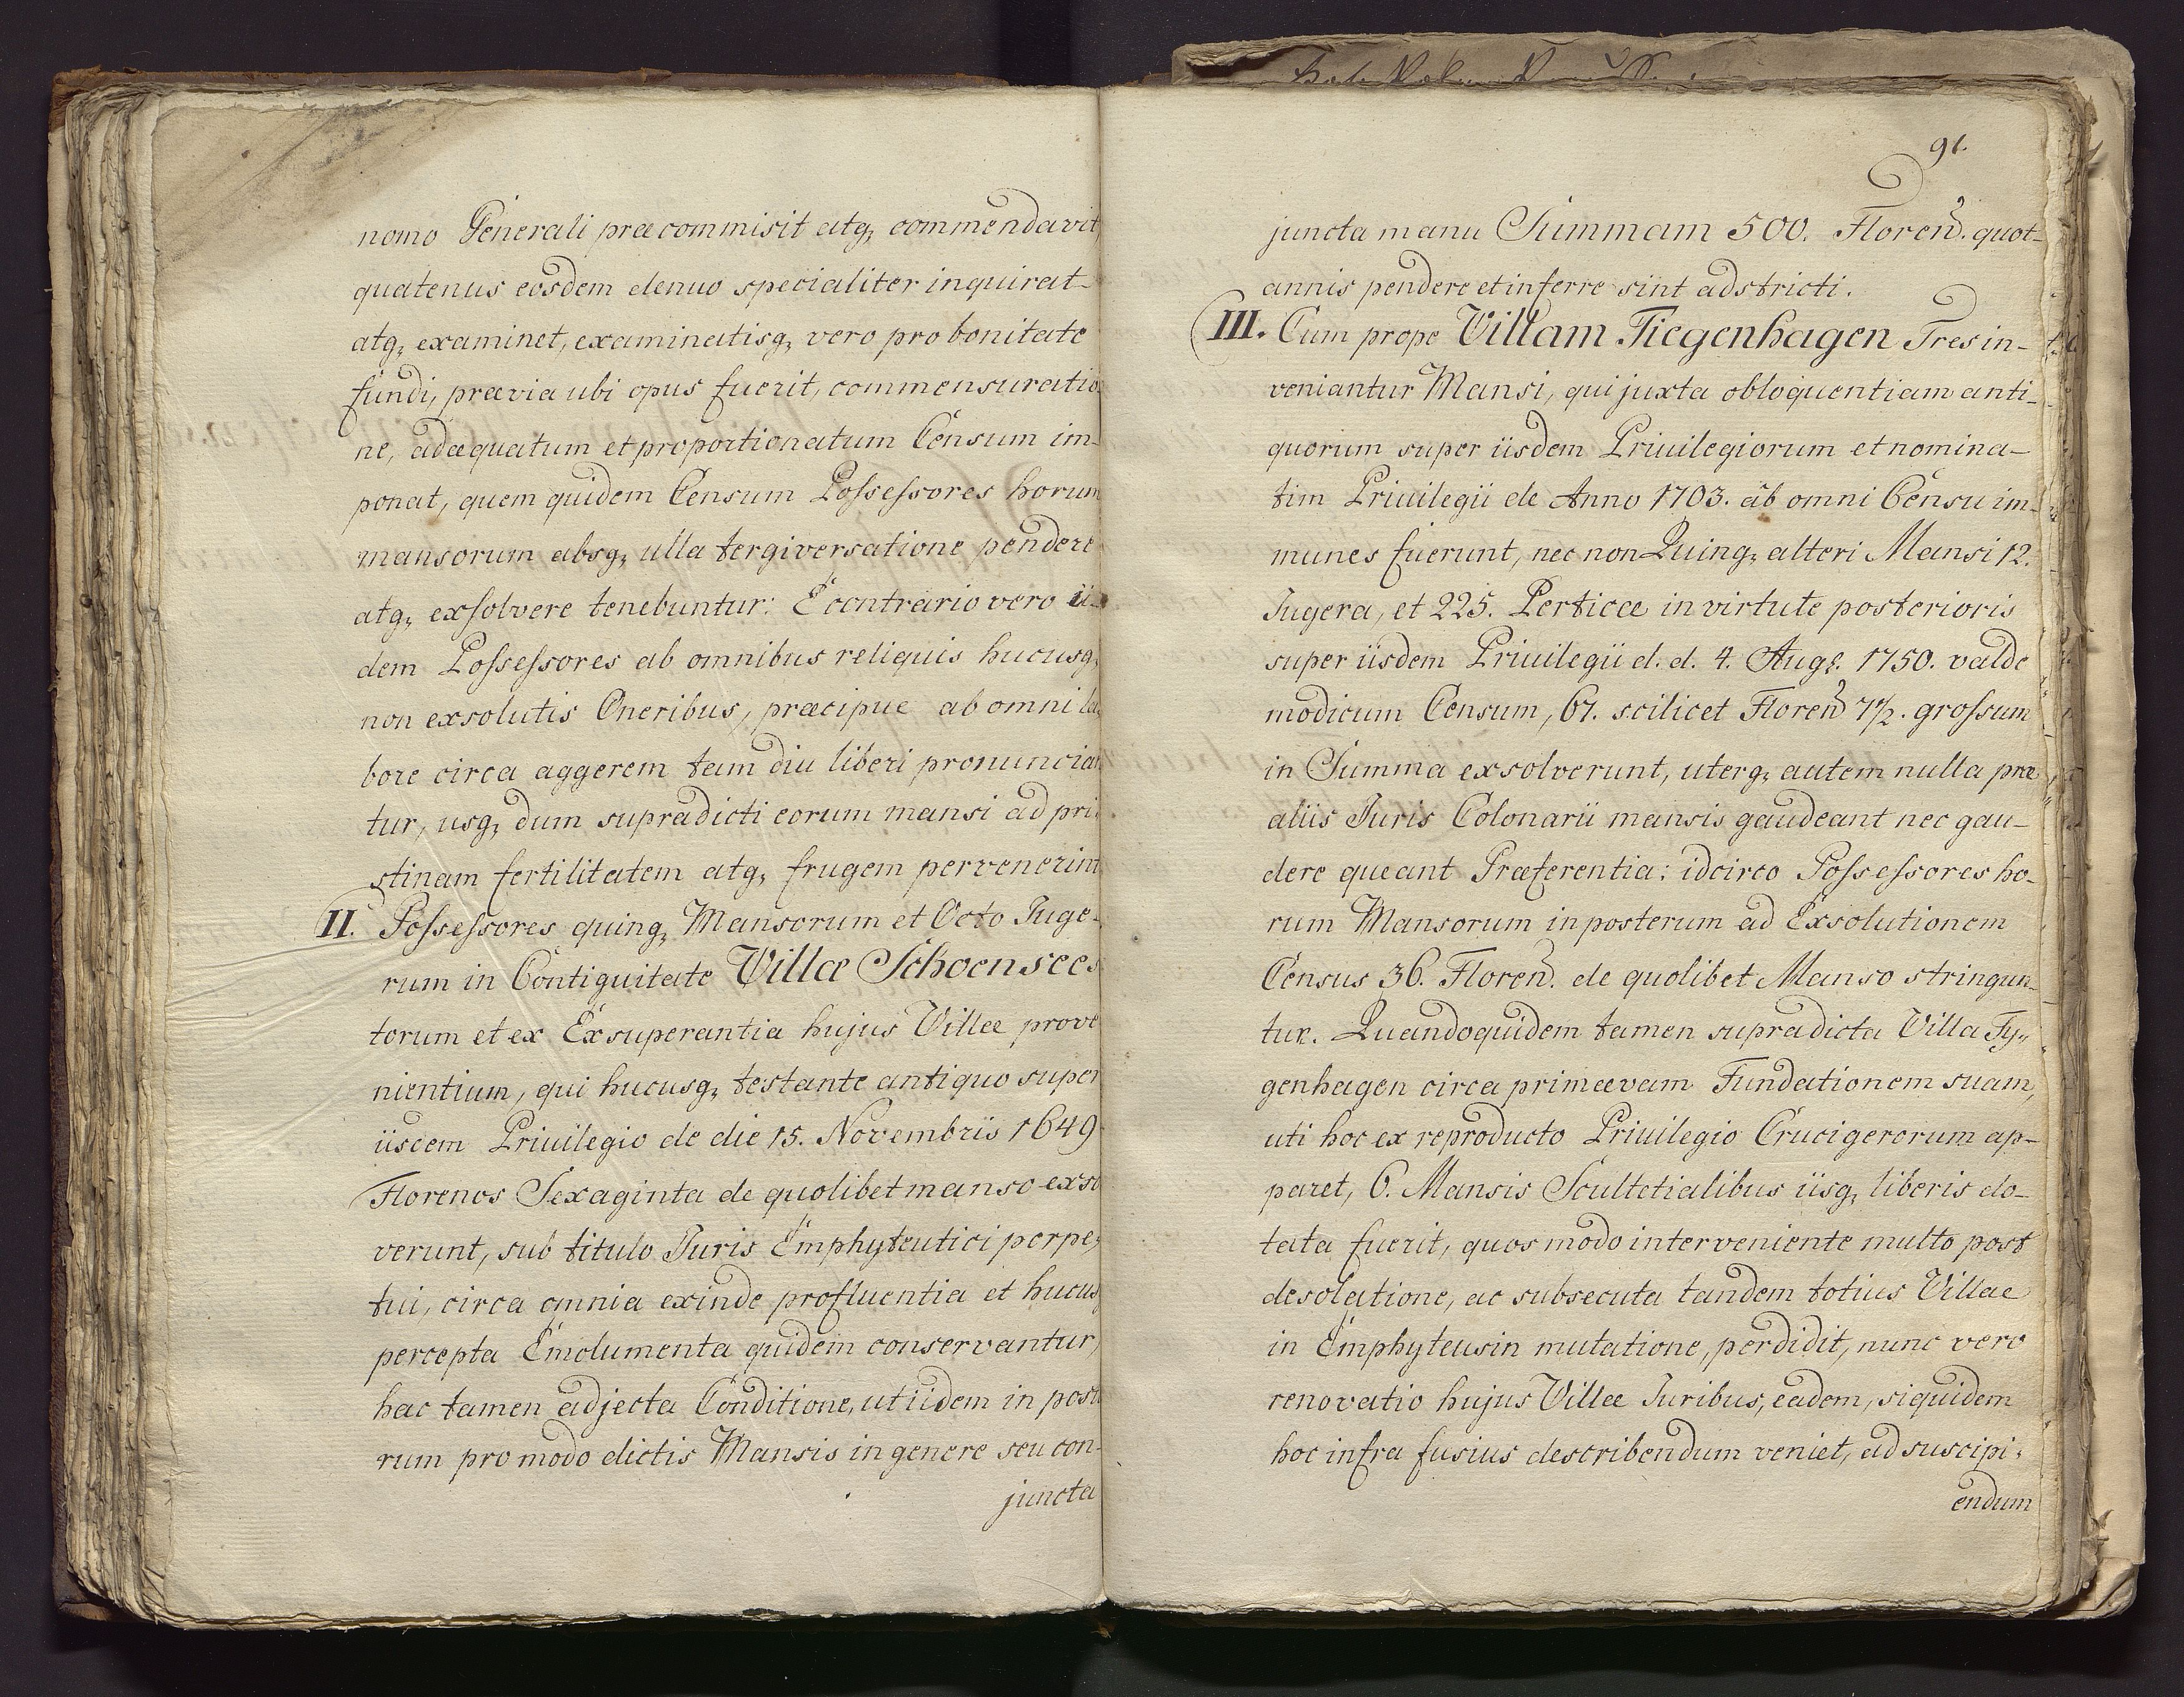 nomo Generali præcommisit atq, commendavit,
quatenus eosdem denuo specialiter inquirat
atq, examinet, examinatisq, vero pro bonitate
fundi, prævia ubi opus fuerit, commensuratio
ne, adæquatum et proportionatum Censum im-
ponat, quem quidem Censum Possessores horum
mansorum absq, ulla tergiversatione pendere
atq, exsolvere tenebuntur: E contrario vero ii-
dem Possessores ab omnibus reliquis hucusq,
non exsolutis Oneribus, præcipue ab omni la,
bore circa aggerem tam diu liberi pronuncian
tur, usq, dum supradicti eorum mansi ad pri,
stinam fertilitatem atq, frugem pervenerint
II. Possessores quinq, Mansorum et Octo Juge-
rum in Contiguitate Villæ Schoensees
torum et ex Exsuperantia hujus Villæ prove
nientium, qui hucusq, testante antiquo super
iiscem Privilegio de die 15. Novembris 1649
Florenos Sexaginta de quolibet manso exso
verunt, sub titulo Juris Emphyteutici perpe,
tui, circa omnia exinde profluentia et hucusq
percepta Emolumenta quidem conservantur,
hac tamen adjecta Conditione, ut iidem in poste
rum pro modo dictis Mansis in genere seu con-
juncta
91.
juncta manu Summam 500. Floren. quot-
annis pendere et inferre sint adstricti.
III. Cum prope Villam Tiegenhagen Tres in-
veniantur Mansi, qui juxta obloquentiam anti-
quorum super iisdem Privilegiorum et nomina-
tim Privilegii de Anno 1703. ab omni Censu im-
munes fuerunt, nec non Quinq, alteri Mansi 12.
Jugera, et 225. Perticæ in virtute posterioris
super iisdem Privilegii d. d. 4. Aug. 1750. valde
modicum Censum, 61. scilicet Floren 7½. grossum
in Summa exsolverunt, uterq, autem nulla præ
aliis Juris Colonarii mansis gaudeant nec gau-
dere queant Præferentia: idcirco Possessores ho-
rum Mansorum in posterum ad Exsolutionem
Census 36. Floren. de quolibet Manso stringun-
tur. Quandoquidem tamen supradicta Villa Ty,,
genhagen circa primævam Fundationem suam,
uti hoc ex reproducto Privilegio Crucigerorum ap-
paret, 6. Mansis Scultetialibus iisq, liberis do-
tata fuerit, quos modo interveniente multo post
desolatione, ac subsecuta tandem totius Villae
in Emphyteusin mutatione, perdidit, nunc vero
renovatio hujus Villæ Juribus, eadem, siquidem
hoc infra fusius describendum veniet, ad suscipi,
endum